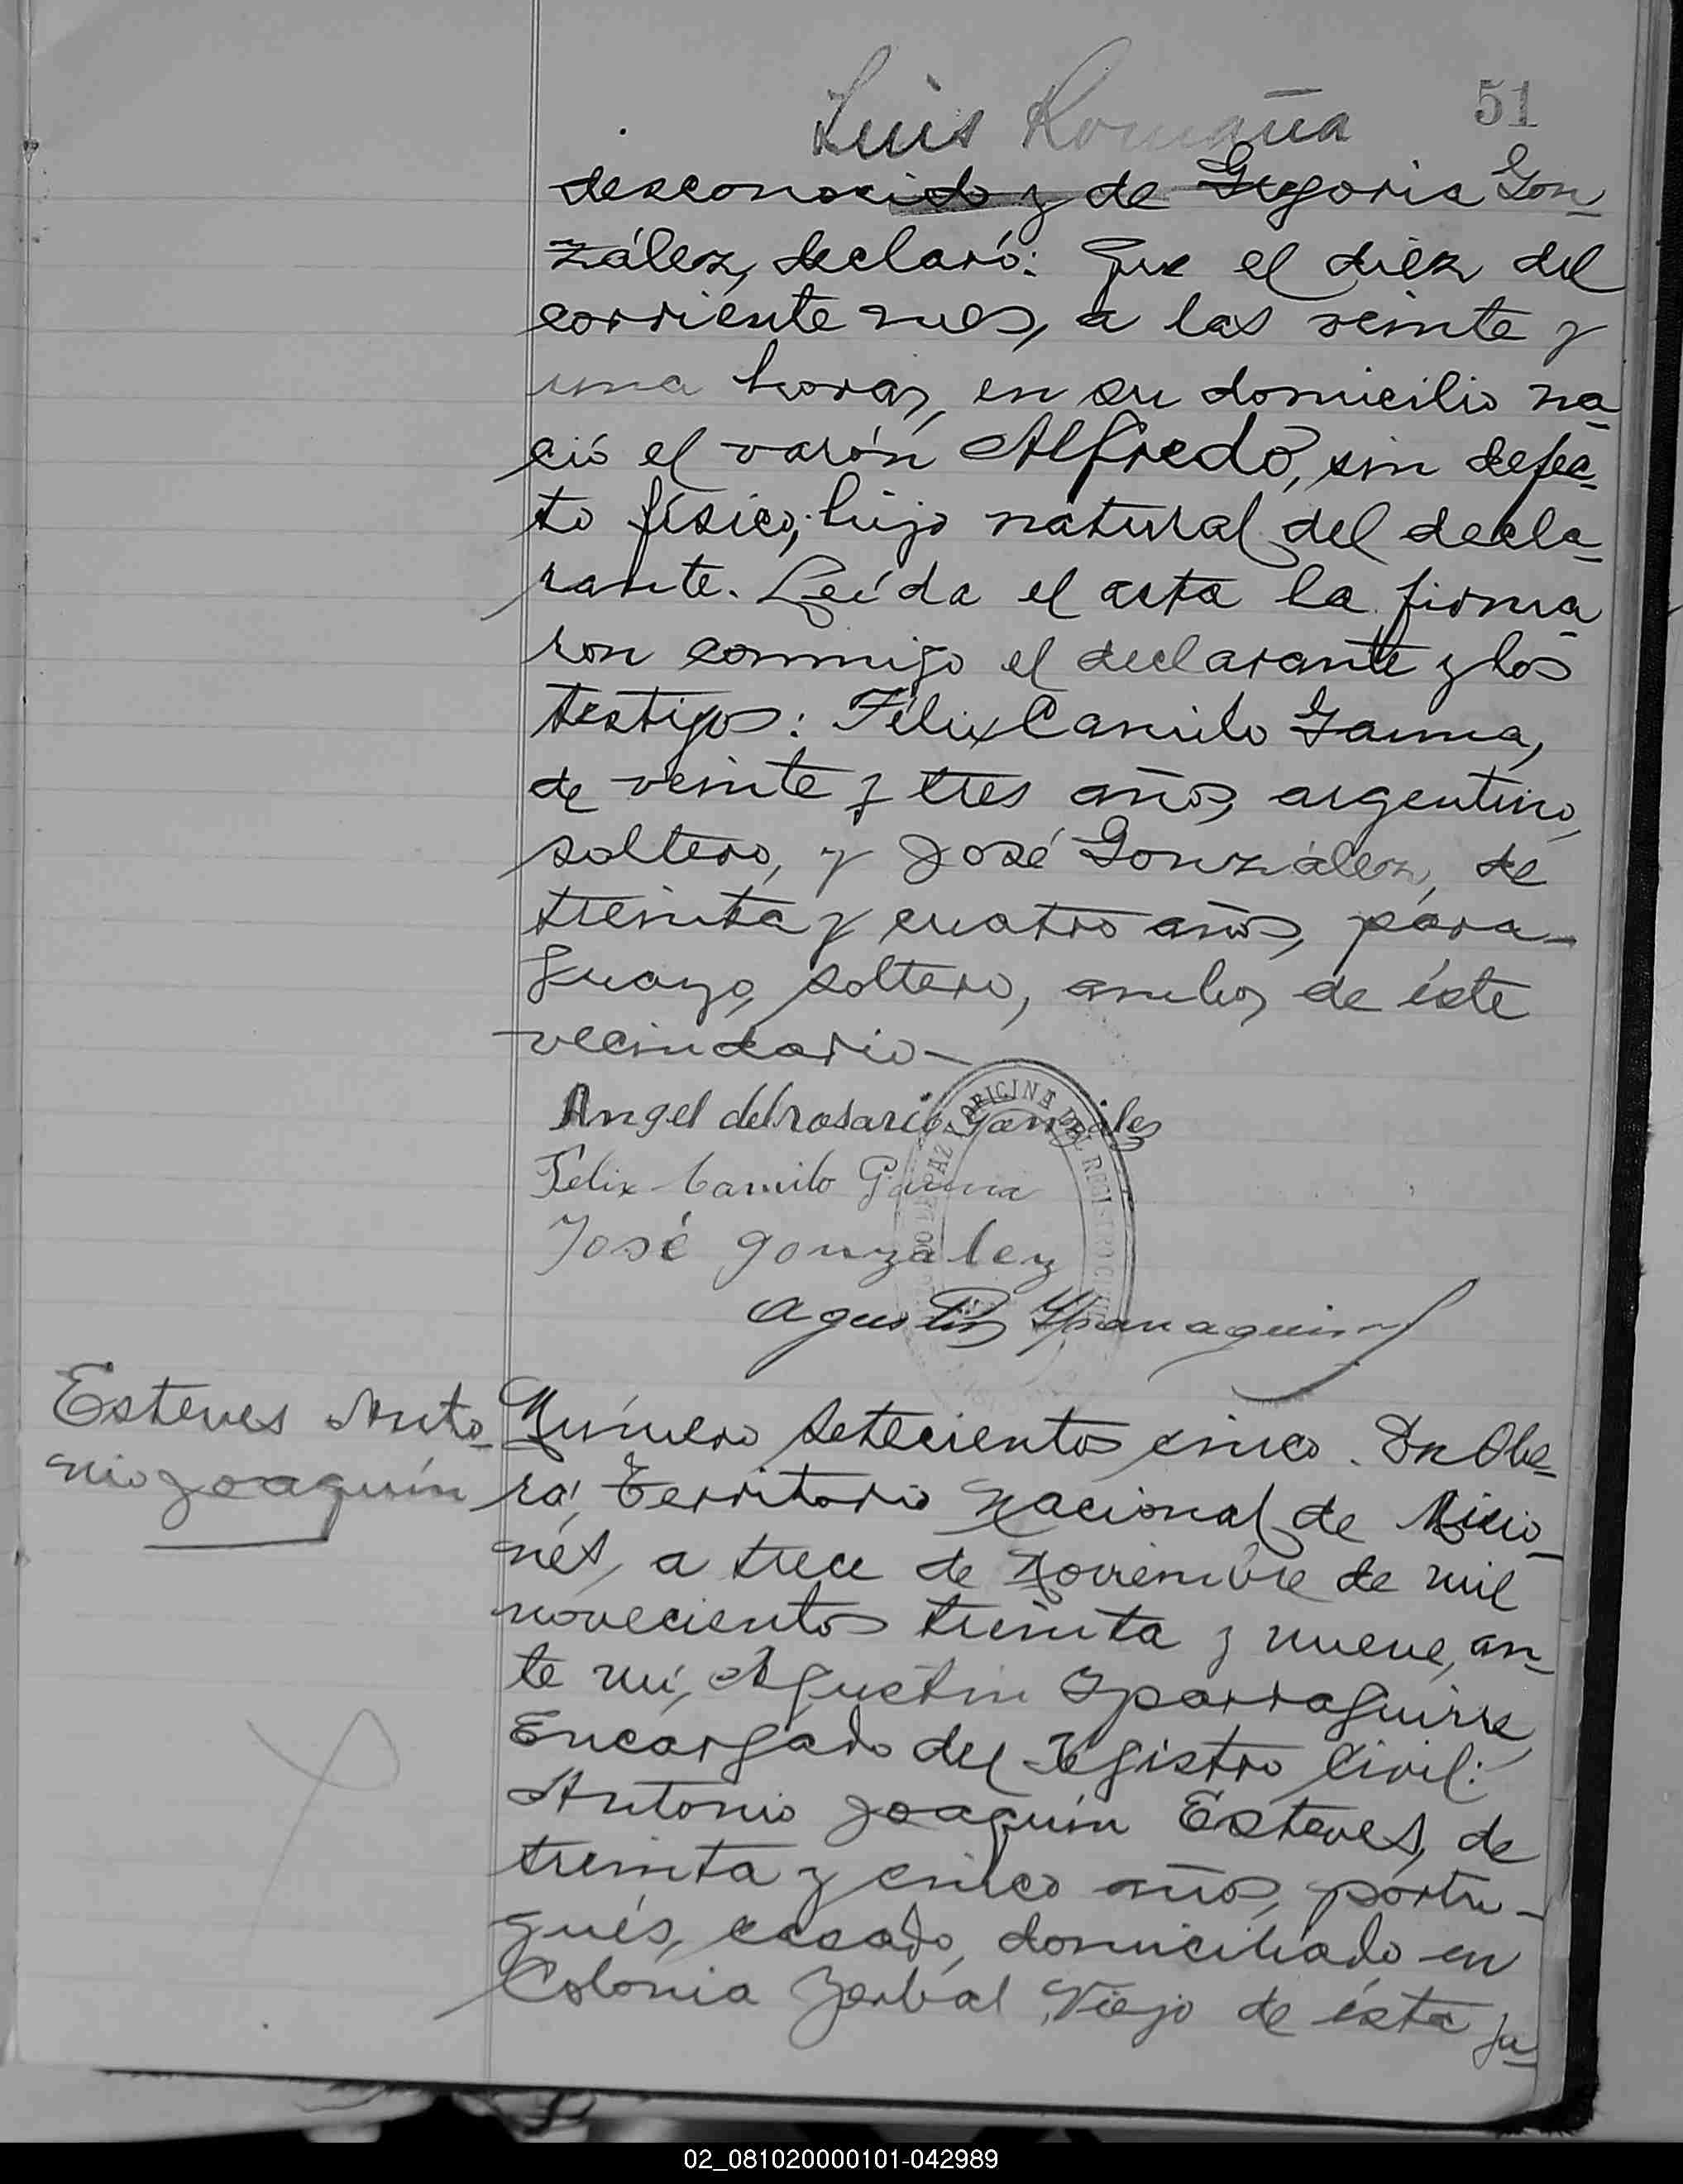 51
Luis Romaña
desconocido y de Gregoria Gon-
zález, declaró: Que el diez del
corriente mes, a las veinte y
una horas, en su domicilio na-
ció el varón Alfredo, sin defec-
to físico, hijo natural del decla-
rante. Leída el acta la firma-
ron conmigo el declarante y los
testigos: Félix Camilo Gauna,
de veinte y tres años, argentino,
soltero, y José González, de
treinta y cuatro años, para-
guayo, soltero, ambos de éste
vecindario—
Angel del rosario Gonzales
Felix Camilo Gauna
José gonzalez
OFICINA DEL REGISTRO CIVIL
Agustin Yparraguirre
Esteves Anto-
nio Joaquín
Número setecientos cinco. En Obe-
rá, Territorio Nacional de Misio-
nes, a trece de Noviembre de mil
novecientos treinta y nueve, an-
te mí, Agustin Yparraguirre
Encargado del Registro Civil:
Antonio Joaquín Esteves, de
treinta y cinco años, portu-
gués, casado, domiciliado en
Colonia Yerbal Viejo de ésta ju-
02_081020000101-042989